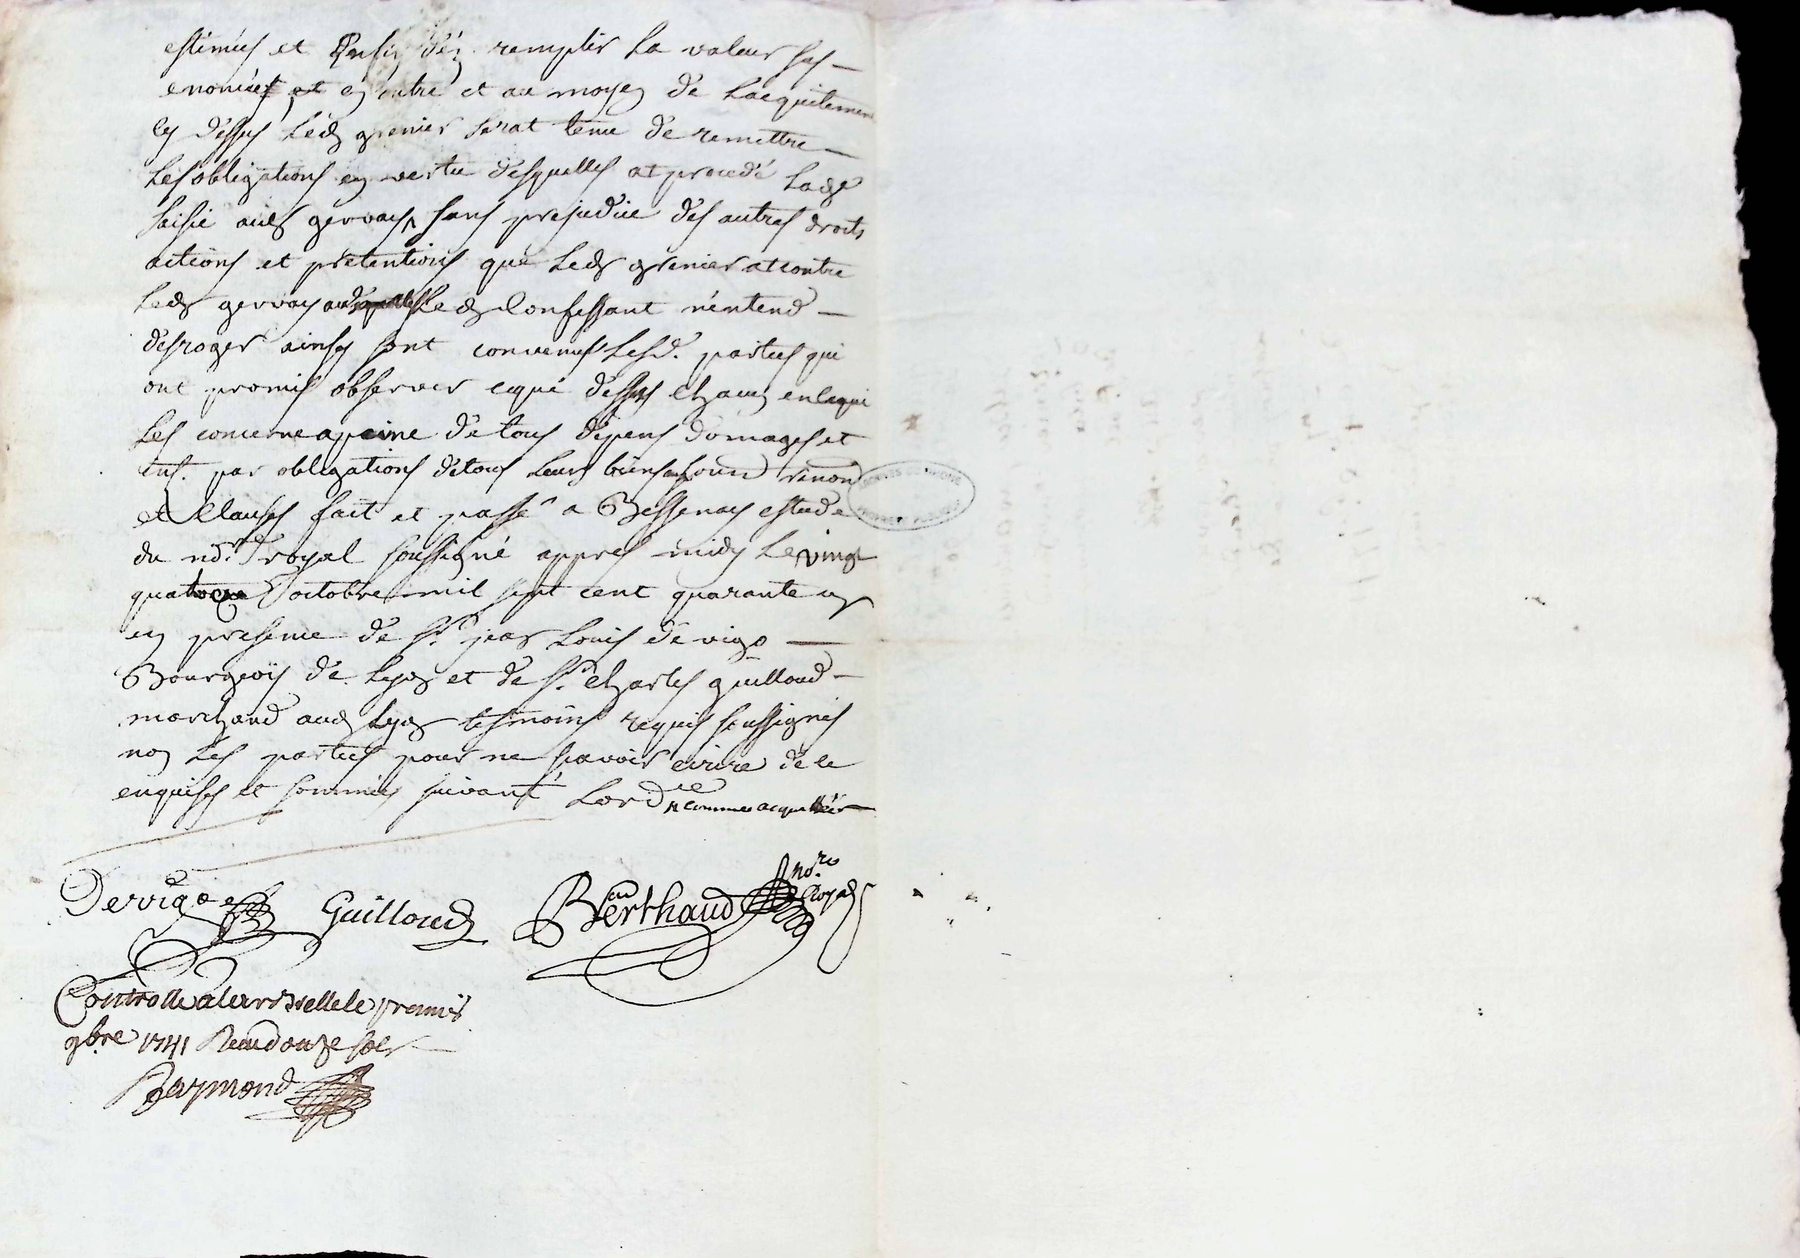 estimés et enfin d'en remplir la valeur sus
enoncéés et en outre et au moyen de lacquitement
cy dessus led grenier serat tenu de remettre
les obligations en vertu desquelles at procedé lad
saisie aud gervays sans prejudice des autres droits
actions et pretentions que led grenier at contre
led gervay led Confessant n'entend
desroger ainsy sont convenus lesd. parties qui
ont promis observer ceque dessus chacun en ce qui
les concerne a peine de tous dépens domages et
int. par obligations de tous leurs biens soum renon
et Clauses fait et passé a Bessenay estude
du no.re royal soussigné appres midy le vingt
quatre octobre mil sept cent quarante un
en presence de Sr. jean Louis de vigo
Bourgeois de Lyon et de Sr. Charles guilloud
marchand aud Lyon tesmoins requis soussignés
non les parties pour ne sçavoir ecrire de ce
enquises et sommées suivant Lordce
Dervigo Guilloud Berthaud no.re Royal
Controlle a larbrelle le premier
9bre 1741 Receu douze sols
Raymond